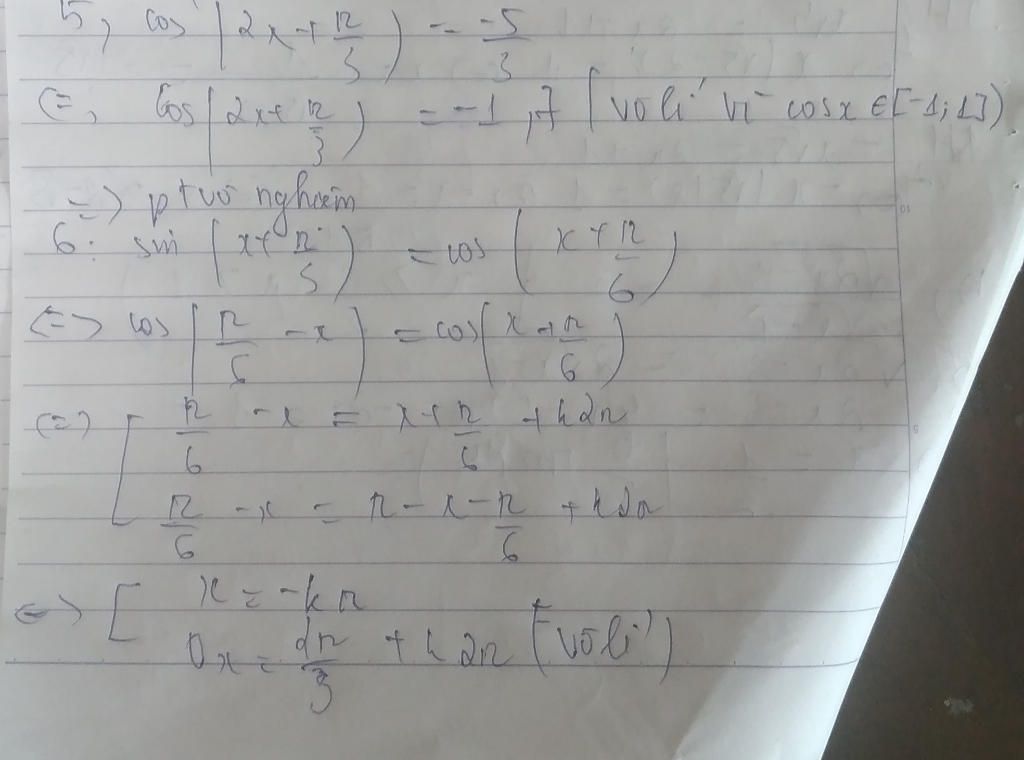 5, cos(2x+π/3) = -5/3
(=, Cos(2x+π/3) = -1,7 (vô lí vì cosx ∈ [-1;1])
=> pt vô nghiệm
6: sin(x+π/3) = cos(x+π/6)
<=> cos(π/6 -x) = cos(x+π/6)
(=) [ π/6 -x = x+π/6 +k2π
π/6 -x = π-x-π/6 +k2π
<=> [ x = -kπ
0x = 2π/3 + k2π (vô lí)